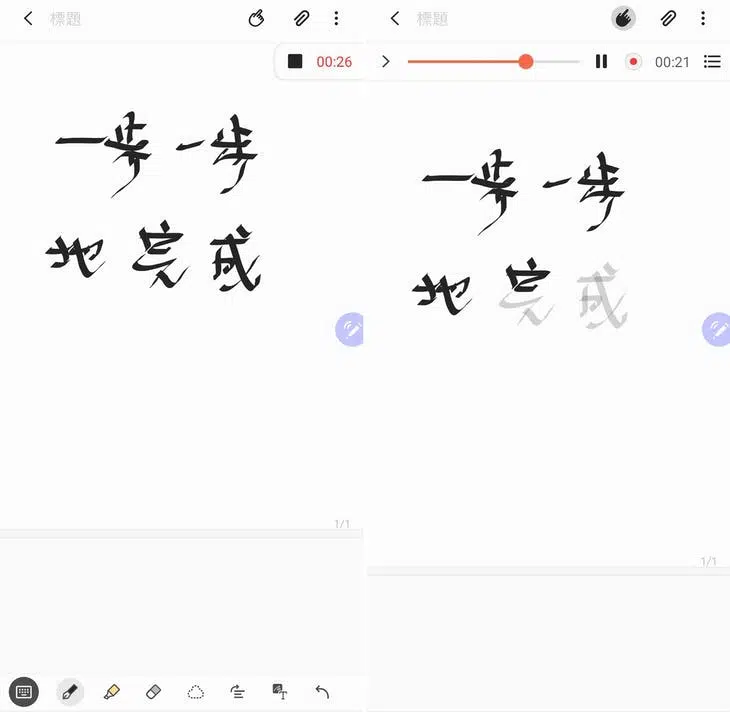 標題
00:26
一步一步
地完成
1/1
標題
00:21
一步一步
地完成
1/1